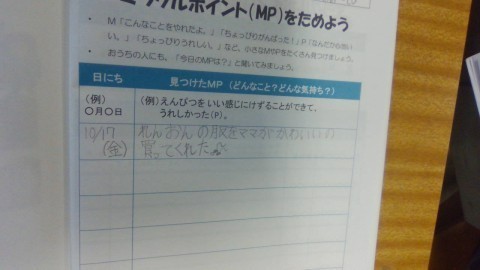 クルポイント(MP)をためよう
・ M「こんなことをやれたよ。」「ちょっぴりがんばった！」P「なんだか
い。」「ちょっぴりうれしい。」など、小さなMやPをたくさん見つけましょう。
・ おうちの人にも、「今日のMPは？」と聞いてみましょう。
日にち 見つけたMP（どんなこと？どんな気持ち？）
（例）
〇月〇日
（例）えんぴつをいい感じにけずることができて、
うれしかった(P)。
10/17
(金)
の服をママがかわいいの
買ってくれた